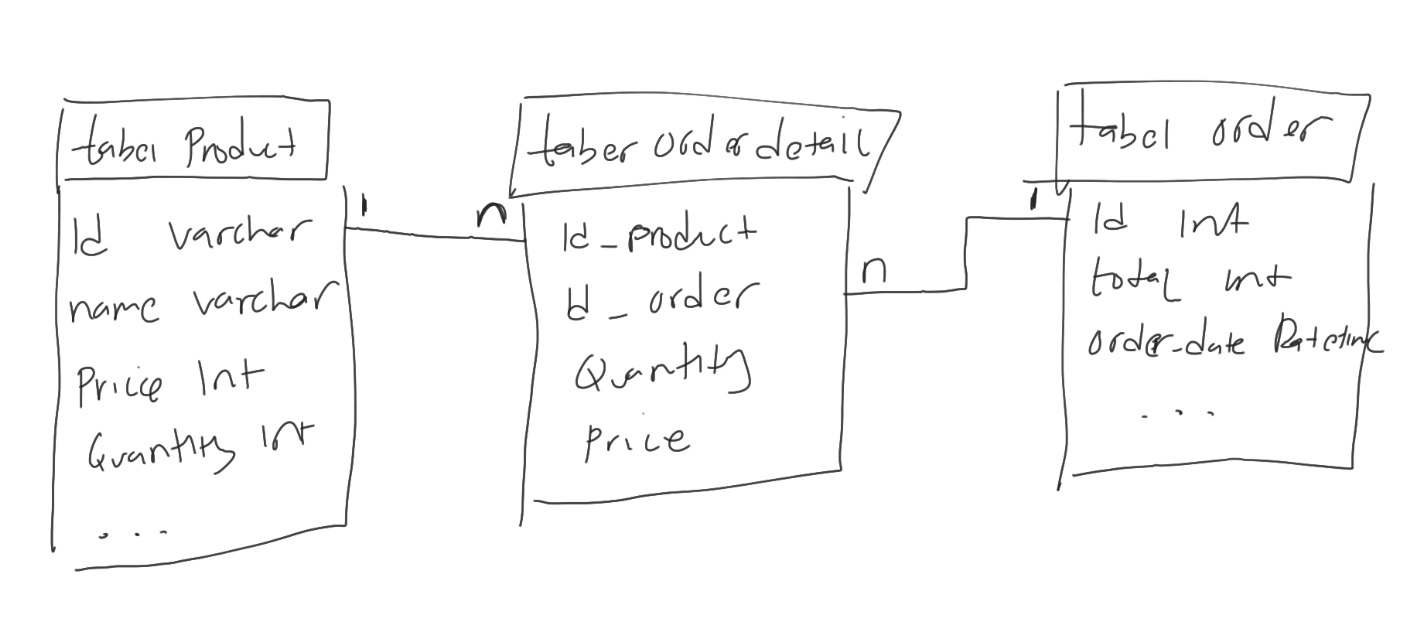 tabel Product
Id varchar
name varchar
Price Int
Quantity Int
...
1
n
taber order detail
Id_product
Id_order
Quantity
Price
n
1
tabel order
Id Int
total Int
order-date Datetime
...